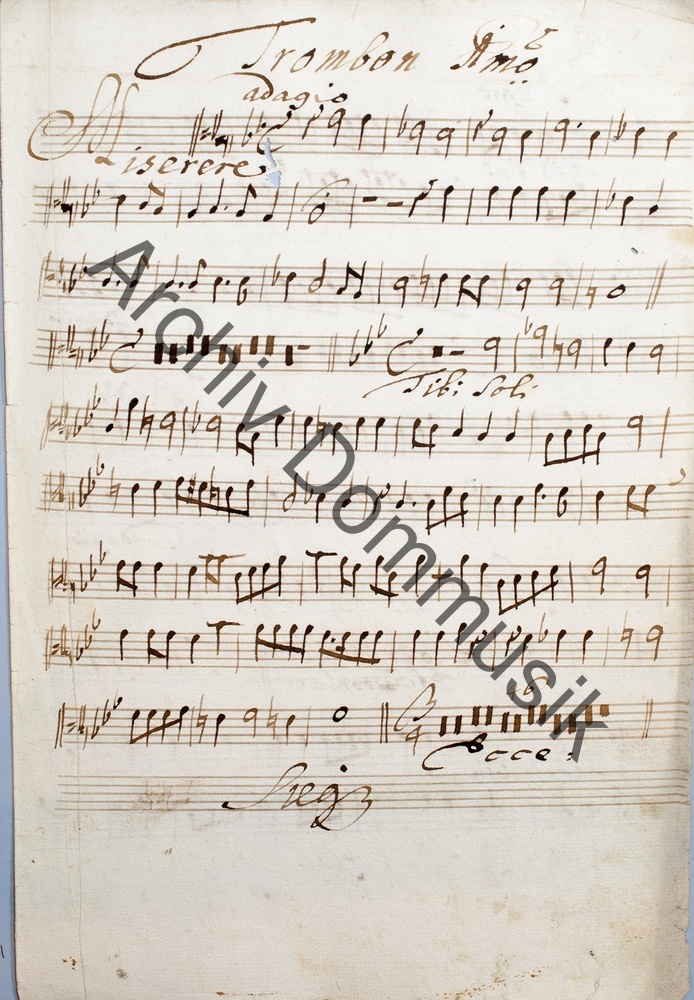 Trombon Imo
adagio
Miserere
Tibi soli
46
Ecce
Seq
Archiv Dommusik